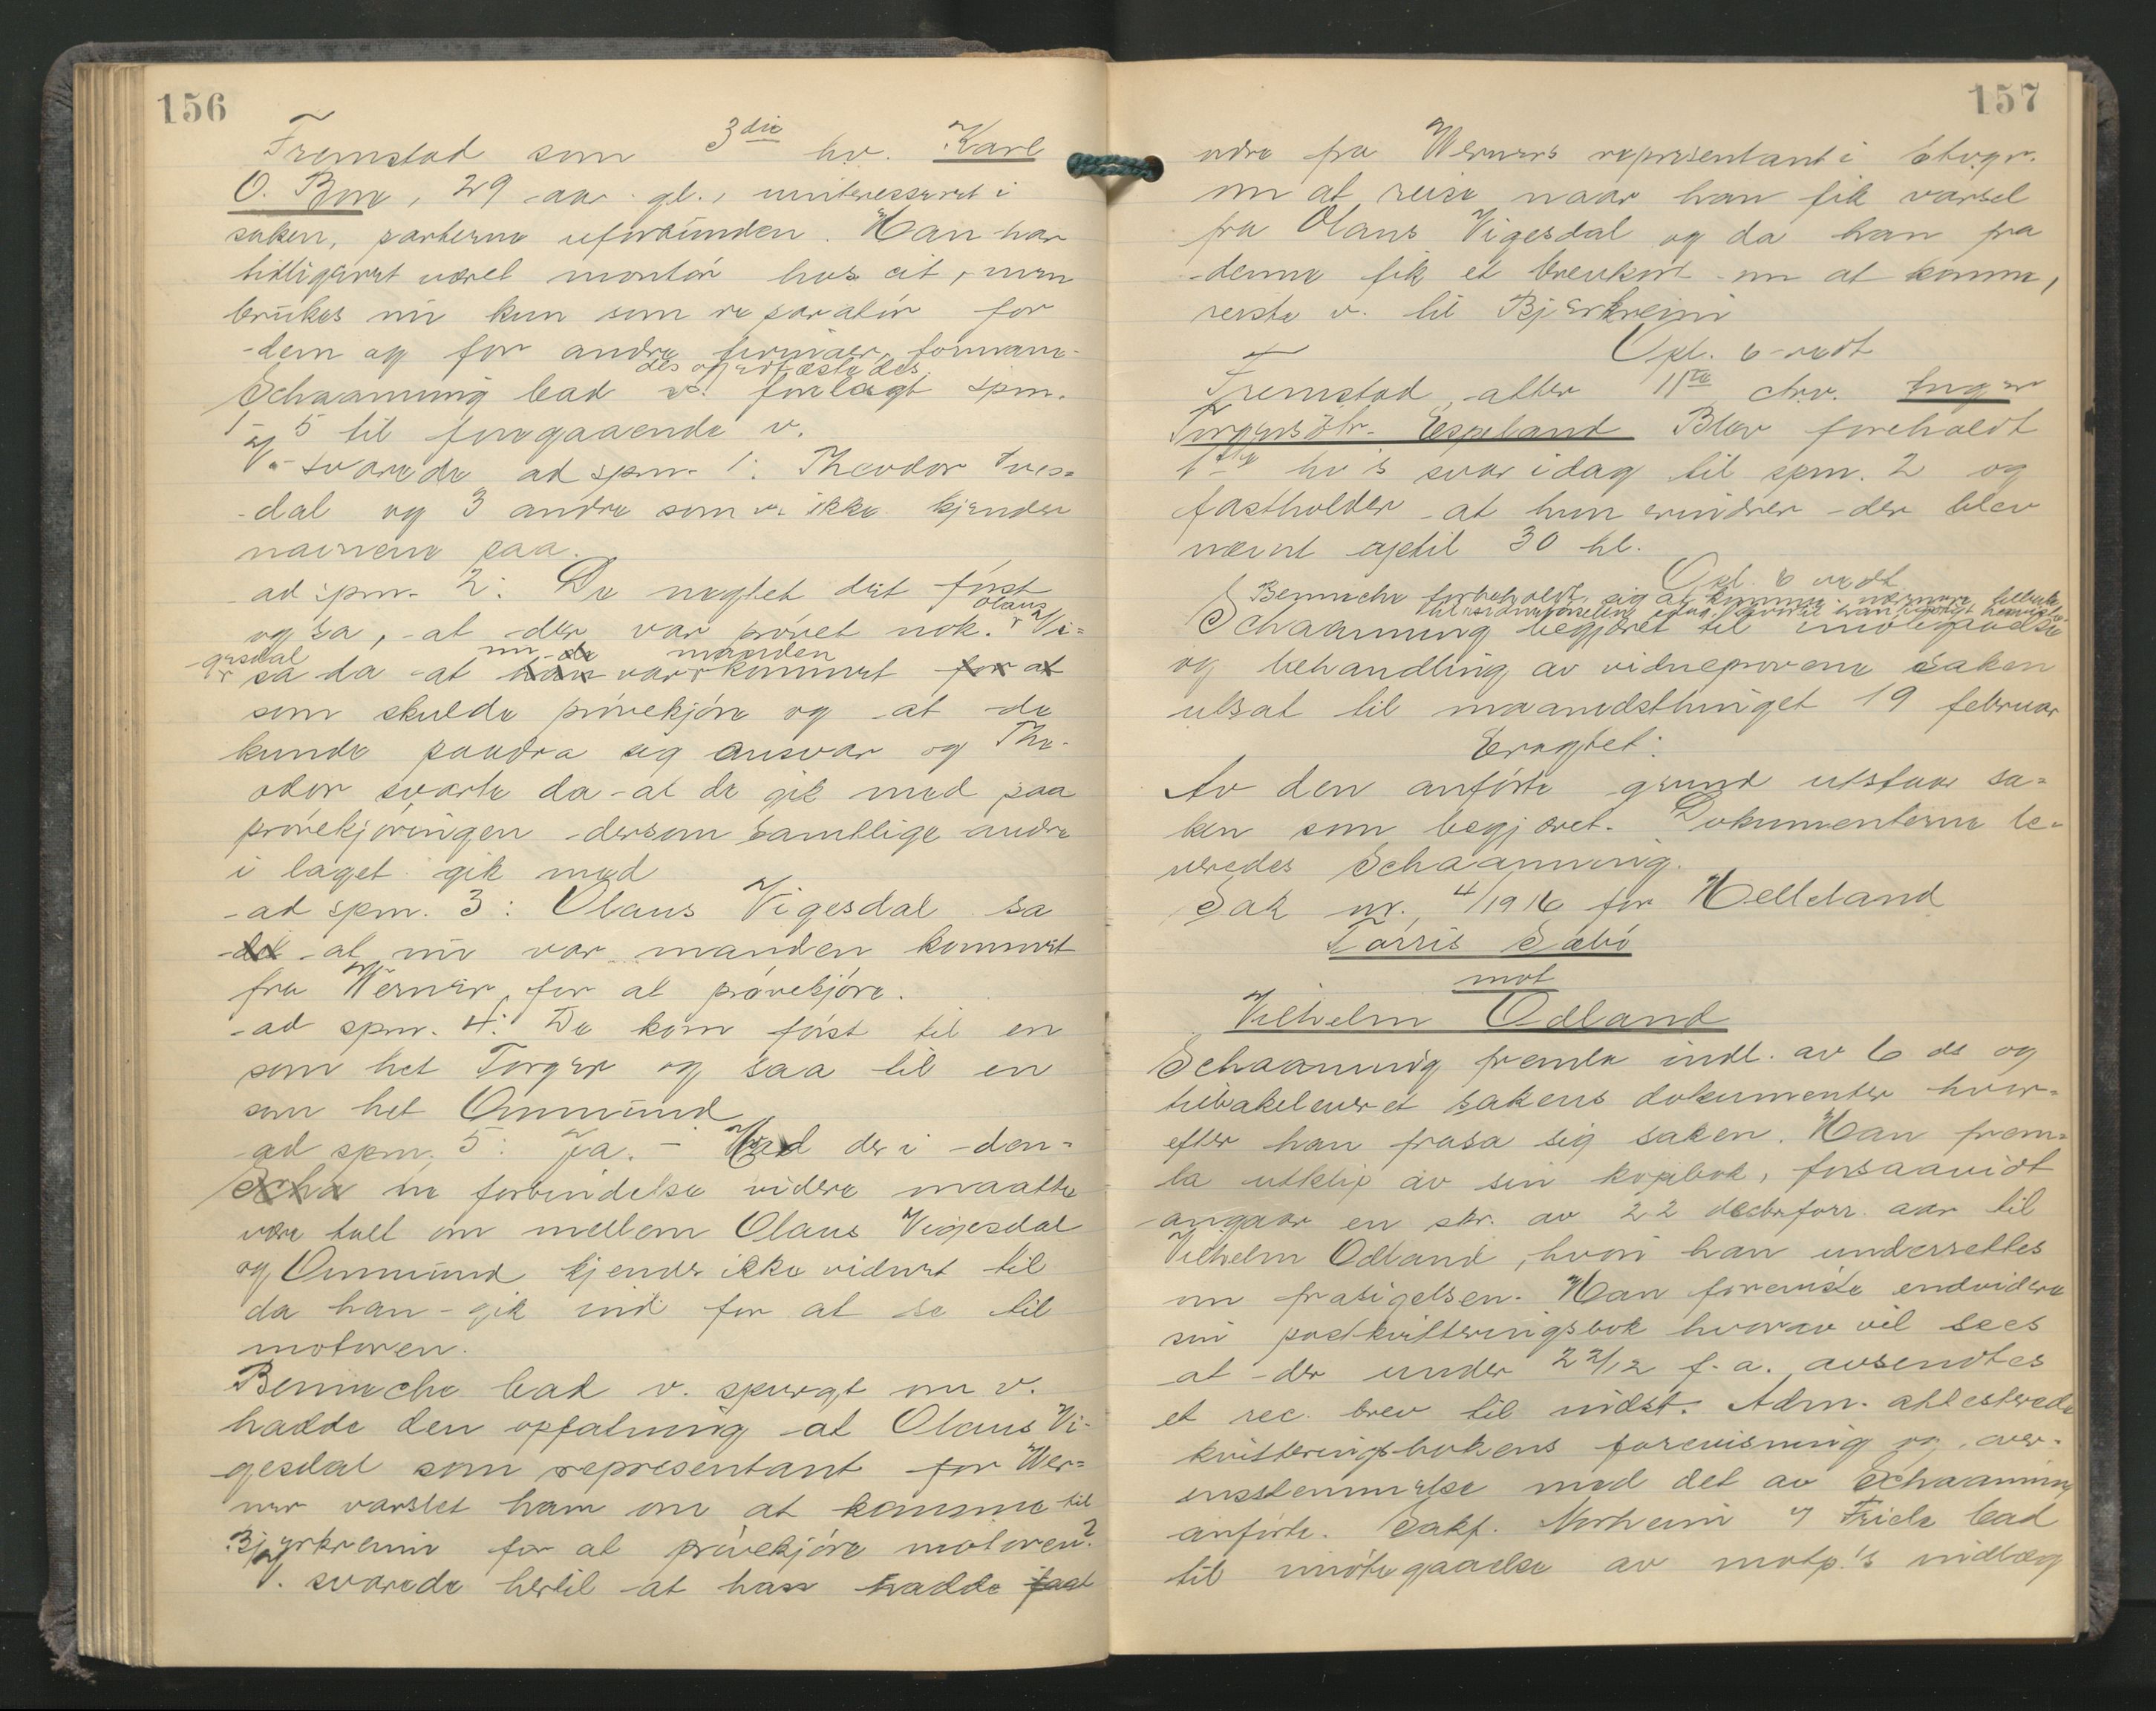 156
Fremstod som 3die hv. Karl
O. Boe, 29 aar gl., uinteressert i
saken, parterne uforbunden. Han har
tidligere været montör hos cit, men
brukes nu kun som reparatör for
dem og for andre firmaer, formane-
des og edfæstedes.
Schaanning bad v. forelagt spm.
1-5 til foregaaende v.
V. svarede ad spm. 1: Theodor Ives-
dal og 3 andre som v. ikke kjender
navnene paa.
ad spm. 2: De negtet det först
og sa, at der var prövet nok. Olaus Vi-
gesdal sa da at nu var manden kommet
som skulde prövekjöre og at de
kunde paadra sig ansvar og The-
odor svarte da at de gik med paa
prövekjöringen dersom samtlige andre
i laget gik med
ad spm. 3: Olaus Vigesdal sa
at nu var manden kommet
fra Werner for at prövekjöre.
ad spm. 4: De kom först til en
som het Torger og saa til en
som het Ommund
ad spm. 5: Ja. – Hvad der i den-
ne forbindelse videre maatte
være talt om mellem Olaus Vigesdal
og Ommund kjender ikke vidnet til
da han gik ind for at se til
motoren.
Benneche bad v. spurgt om v.
hadde den opfatning at Olaus Vi-
gesdal som representant for Wer-
ner varslet ham om at komme til
Bjerkreim for at prövekjöre motoren?
V. svarede hertil at han hadde faat
157
ordre fra Werners representant i Stvgr.
om at reise naar han fik varsel
fra Olaus Vigesdal og da han fra
denne fik et brevkort om at komme,
reiste v. til Bjerkreim
Opl. & vedt
Fremstod atter 11te chv. Inger
Torgersdtr. Espeland Blev foreholdt
1ste hv's svar idag til spm. 2 og
fastholder at hun erindrer der blev
nævnt optil 30 hl.
Opl. & vedt
Benneche forbeholdt sig at komme nærmere tilbake
til vidneförselen idag hvortil han
Schaanning begjæret til imötegaaelse
og behandling av vidneprovene saken
utsat til maanedsthinget 19 februar
Eragtet:
Av den anförte grund utstaar sa-
ken som begjæret. Dokumenterne le-
veredes Schaanning.
Sak nr. 4/1916 for Helleland
Törris Sæbö
mot
Vilhelm Ödland
Schaanning fremla indl. av 6 ds og
tilbakeleveret sakens dokumenter hvor-
efter han frasa sig saken. Han frem-
la utklip av sin kopibok, forsaavidt
angaar en skr. av 22 decbr forr. aar til
Vilhelm Ödland, hvori han underrettes
om frasigelsen. Han foreviste endvidere
sin postkvitteringsbok hvorav vil sees
at der under 22/12 f. a. avsendtes
et rec. brev til indst. Adm. attesterede
kvitteringsbokens forevisning og over-
ensstemmelse med det av Schaanning
anförte. Sakf. Norheim v/ Friele bad
til imötegaaelse av motp.'s indlæg